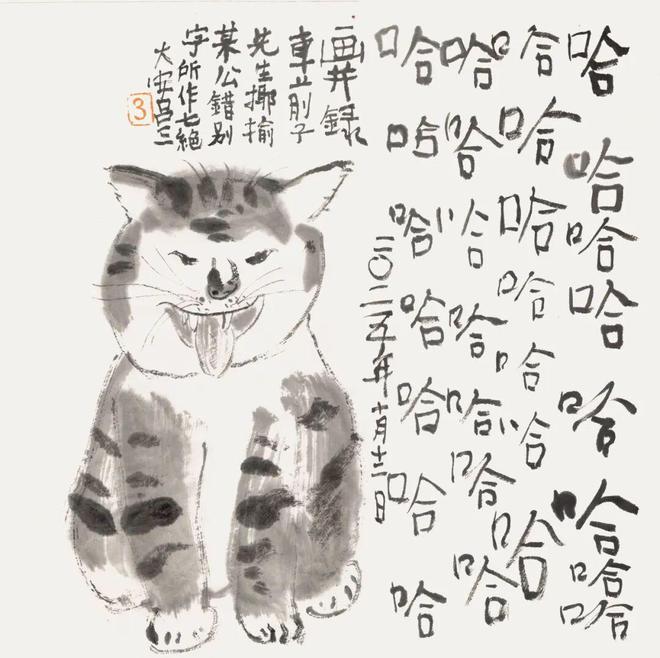 哈哈哈哈哈哈哈哈
哈哈哈哈哈哈哈
哈哈哈哈哈哈哈
哈哈哈哈哈哈哈
二〇二五年十月十二日
画并録
車前子
先生揶揄
某公錯别
字所作七絕
大安呂三
3